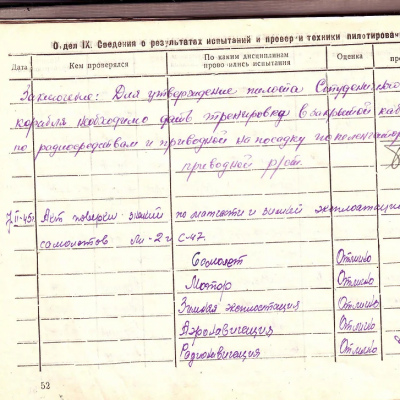 Отдел IX. Сведения о результатах испытаний и проверки техники пилотирова
Дата
Кем проверялся
По каким дисциплинам проводились испытания
Оценка
Заключение: Для утверждения пилота
корабля необходимо дать тренировку в закрытой каб
по радиосредствам и приводной на посадку по
приводной р/ст.
7/II-45г Акт поверки знаний по матчасти и зимней эксплоатации
самолётов Ли-2 и С-47.
Самолёт Отлично
Мотор Отлично
Зимняя эксплоатация Отлично
Аэронавигация Отлично
Радионавигация Отлично
52